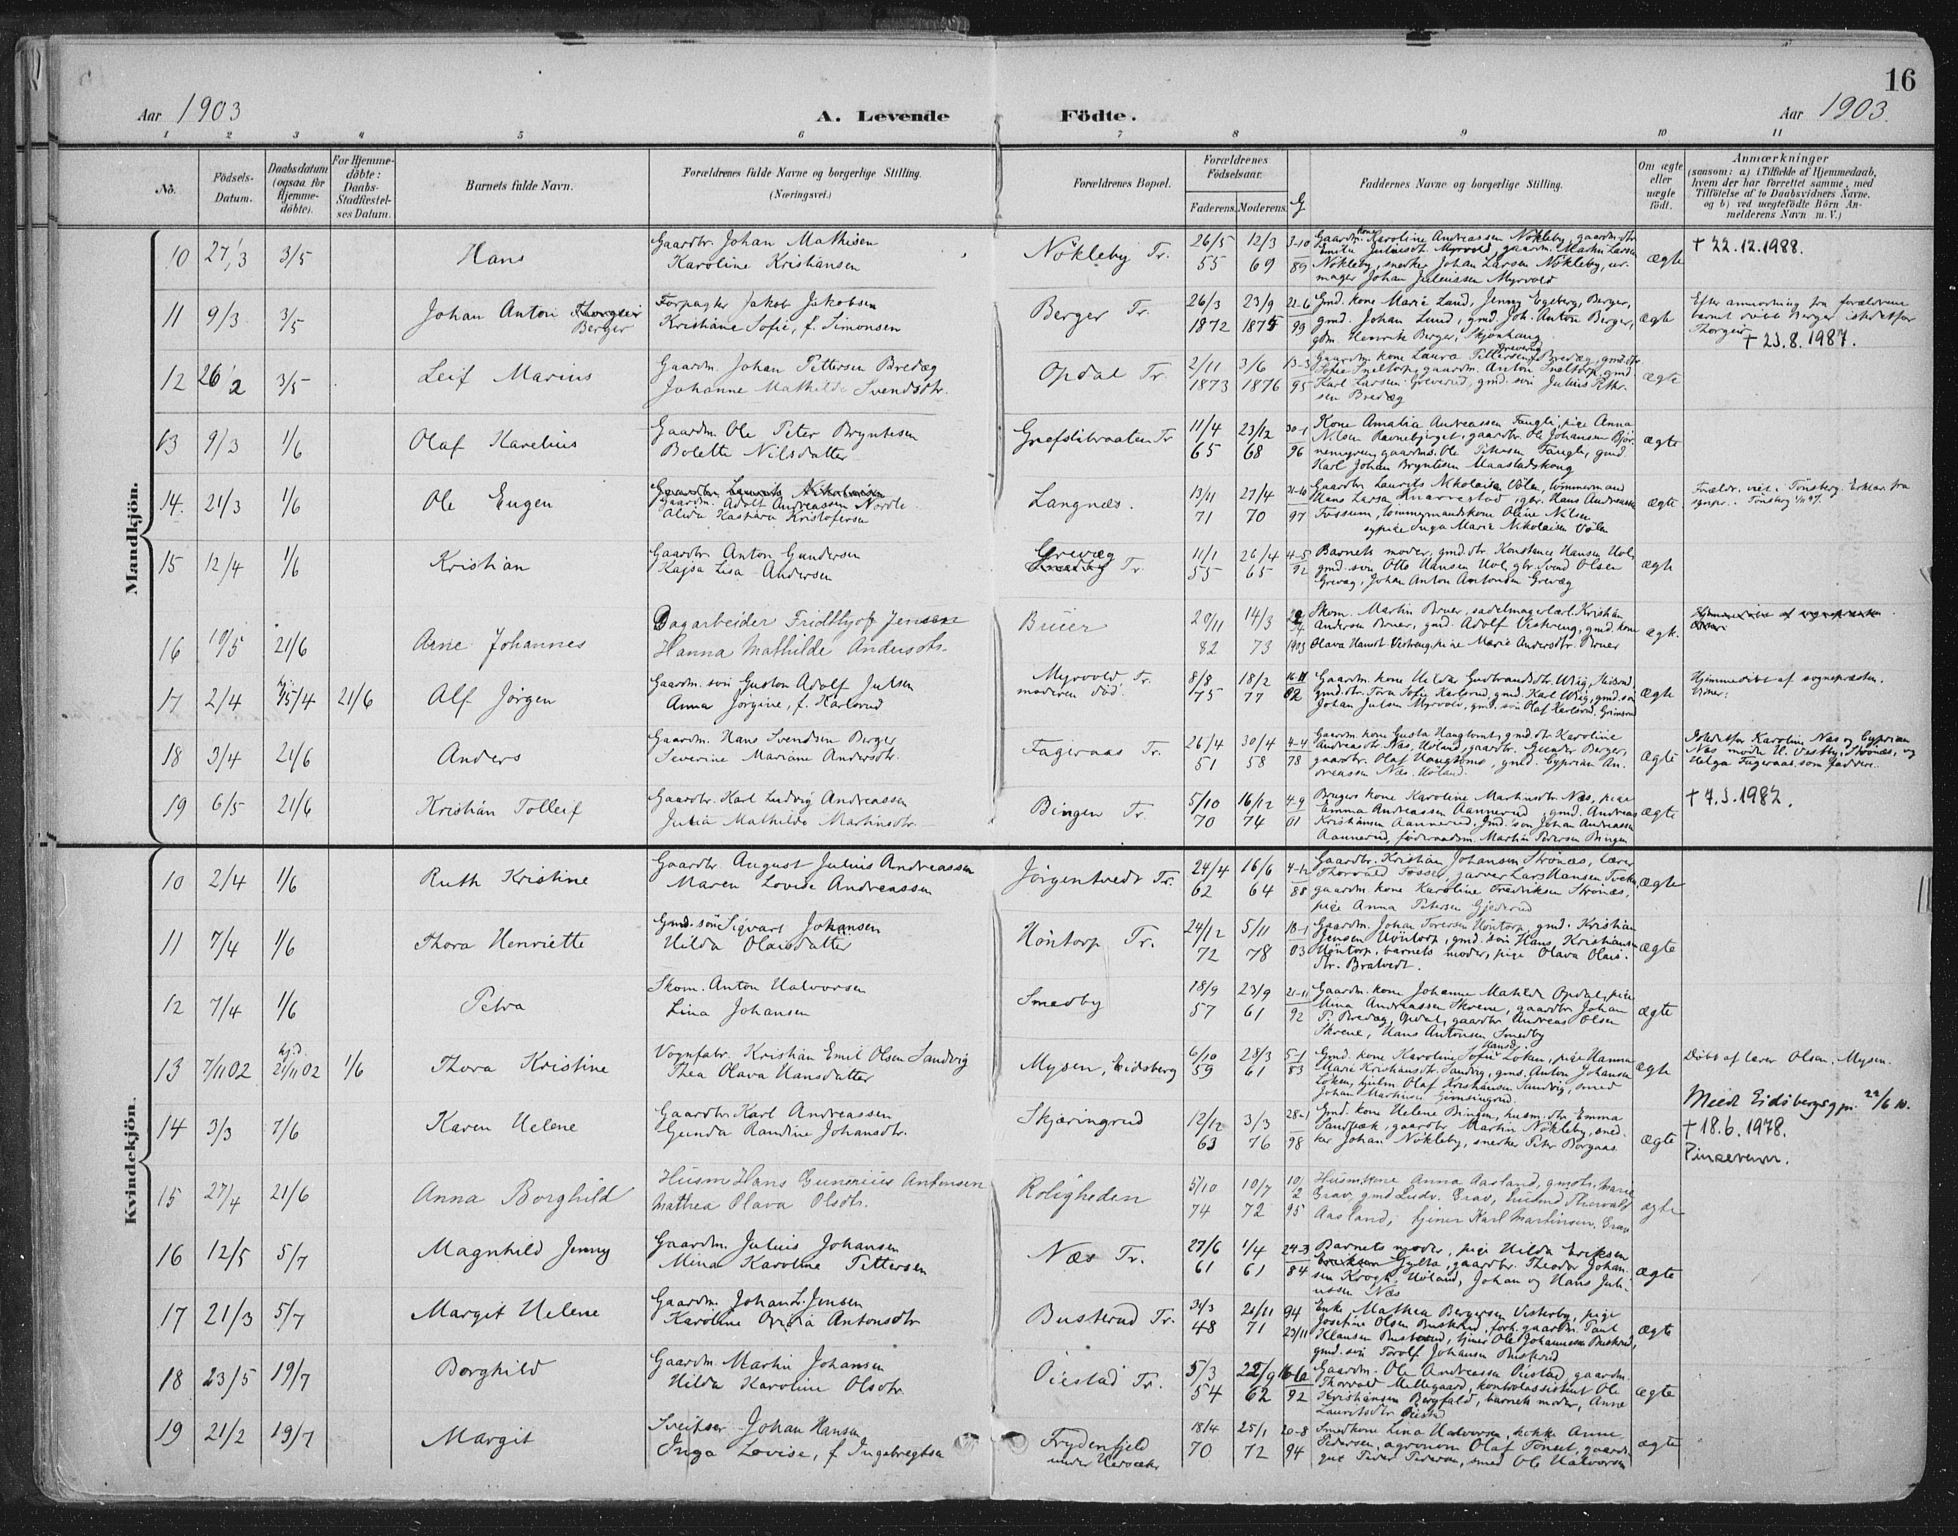 16
Aar 1903
A. Levende Födte.
Aar 1903.
1 2 3 4 5 6 7 8 9 10 11
No.
Födsels-Datum.
Daabsdatum (ogsaa for Hjemme-döbte).
For Hjemme-döbte: Daabs-Stadfæstel-ses Datum.
Barnets fulde Navn.
Forældrenes fulde Navne og borgerlige Stilling.
(Næringsvei.)
Forældrenes Bopæl.
Forældrenes Födselsaar.
Faderens. Moderens.
G
Faddernes Navne og borgerlige Stilling.
Om ægte eller uægte födt.
Anmærkninger
(saasom: a) i Tilfælde af Hjemmedaab,
hvem der har forrettet samme, med
Tilföielse af to Daabsvidners Navne.
og b) ved uægtefödte Börn An-
melderens Navn m. V.)
Mandkjön.
10 27/3 3/5 Hans
Gaardbr. Johan Mathisen
Karoline Kristiansen
Nökleby Tr. 26/5 55 12/3 69 3-10 89
ægte
† 22.12.1988.
11 9/3 3/5 Johan Anton Thorgeir Berger
Forpagter Jakob Jakobsen
Kristiane Sofie, f. Simonsen
Berger Tr. 26/3 1872 23/9 1875 21-6 99
Gmd. kone Marie Lund, Jenny Egeberg, Berger,
gmd. Johan Lund, gmd. Joh. Anton Berger,
gdm. Henrik Berger, Skjönhaug
ægte
Efter anmodning fra forældrene
barnet döbt Berger istedetfor
Thorgeir
† 23.8.1987.
12 26/2 3/5 Leif Marius
Gaardm. Johan Pettersen Bredæg
Johanne Mathilde Svendsdtr.
Opdal Tr. 2/11 1873 3/6 1876 13-3 95
sen Bredæg
ægte
13 9/3 1/6 Olaf Karelius
Gaardm. Ole Peter Bryntesen
Bolette Nilsdatter
Grefslibraaten Tr 11/4 65 23/12 68 30-1 96
Kone Amalia Andreassen Fangli, pige Anna
Karl Johan Bryntesen Maastadskong
ægte
14. 21/3 1/6 Ole Eugen
Gaardm. Adolf Andreassen Nordli
Alida Kaspara Kristofersen
Langnæs. 13/11 71 27/4 70 21-10 97
Gaardbr. Laurits Nikolaisen Völen, tömmermand
Hans Larsen Knarvestad, gbr. Hans Andreassen
Fossum, tömmermandskone Oline Nilsen
og pige Inga Marie Nikolaisen Völen
ægte
15 12/4 1/6 Kristian
Gaardbr. Anton Gundersen
Kajsa Lisa Andersen
Grevæg
Smedby Tr. 11/1 55 26/4 65 4-5 92
Barnets moder, gmd. dtr. Konstance Hansen Hol,
gmd. sön Otto Hansen Hol, gbr. Svend Olsen
Grevæg, Johan Anton Antonsen Grevæg
ægte
16 10/5 21/6 Arne Johannes
Dagarbeider Fridthjof Jensen
Hanna Mathilde Andersdtr.
Bruer 20/11 82 14/3 73 1903
Skom. Martin Bruer, sadelmagerlærl. Kristian
Andersen Bruer, gmd. Adolf Vestreng, gmd. kone
Olava Hansd. Vestreng, pige Marie Andersdtr. Bruer
ægte
17 2/4 hj. 15/4 21/6 Alf Jörgen
Gaardm. sön Gustav Adolf Julsen
Anna Jörgine, f. Karlsrud
Myrvold Tr.
moderen död. 8/8 75 18/2 77 16-11 02
Johan Julsen Myrvold, gmd. sön Olaf Karlsrud, Grimsrud
ægte
Hjemmedöbt af sognepresten.
18 3/4 21/6 Anders
Gaardm. Hans Svendsen Berger
Severine Mariane Andersdtr.
Fageraas Tr. 26/4 51 30/4 58 4-4 78
Gaardm. kone Gusta Haugtomt, gmd. dtr. Karoline
Andreasdtr. Næs, Höland, gaardbr. Gunder Berger,
gaardbr. Olaf Haugtomt, gmd. Cyprian An-
dreassen Næs, Höland.
ægte
Istedetfor Karoline Næs og Cyprian
Næs mödte H. Vestby, Strönæs, og
Helga Fageraas som faddere.
19 6/5 21/6 Kristian Tolleif
Gaardbr. Karl Ludvig Andreassen
Julia Mathilde Martinsdtr.
Bingen Tr. 5/10 70 16/12 74 4-9 01
Brugers kone Karoline Martinsdtr. Næs, pige
Emma Andreassen Aannerud, gmd. Andreas
Kristiansen Aannerud, gmd. sön Johan Andreassen
Aannerud, föderaadsm. Martin Pedersen Bingen
ægte
† 7.3.1982.
Kvindekjön.
10 2/4 1/6 Ruth Kristine
Gaardbr. August Julius Andreassen
Maren Lovise Andreassen
Jörgentvedt Tr. 24/4 62 16/6 64 4-12 88
Gaardbr. Kristian Johansen Strönæs, lærer
Thorvald Fosser, garver Lars Hansen Tveten,
gaardm. kone Karoline Fredriksen Strönæs,
pige Anna Petersen Gjederud
ægte
11 7/4 1/6 Thora Henriette
Gmd. sön Sigvart Johansen
Hilda Olaisdatter
Höntorp Tr. 24/12 72 5/11 78 18-1 03
Gaardm. Johan Torersen Höntorp, gmd. Kristian
Jensen Höntorp, gmd. sön Hans Kristiansen
Höntorp, barnets moder, pige Olava Olais-
dtr. Bratvedt.
ægte
12 7/4 1/6 Petra
Skom. Anton Halvorsen
Lina Johansen
Smedby 18/9 57 23/9 61 21-11 92
Gaardm. kone Johanne Mathilde Opdal, pige
Mina Andreassen Skrene, gaardbr. Johan
P. Bredæg, Opdal, gaardbr. Andreas Olsen
Skrene, Hans Antonsen Smedby
ægte
13 7/11 02 hjd. 21/11 02 1/6 Thora Kristine
Vognfabr. Kristian Emil Olsen Sandvig
Thea Olava Hansdatter
Mysen, Eidsberg 6/10 59 28/3 61 5-1 83
Gmd. kone Karoline Sofie Hansd. Löken, pige Hanna
Marie Kristiansdtr. Sandvig, gmd. Anton Johansen
Löken, hjulm. Olaf Kristiansen Sandvig, smed
Johan Martinsen Grimsingrud.
ægte
Döbt af lærer Olsen, Mysen.
14 3/3 7/6 Karen Helene
Gaardbr. Karl Andreassen
Gunda Randine Johansdtr.
Skjæringrud 12/12 63 3/3 76 28-1 98
Gmd. kone Helene Bingen, husm. dtr. Emma
Sandbæk, gaardbr. Martin Nökleby, sned-
ker Johan Nökleby, snekker Petter Borgaas
ægte
Meldt Eidsbergs gpr. 22/6 10.
† 18.6.1978.
15 27/4 21/6 Anna Borghild
Husm Hans Gunerius Antonsen
Mathea Olava Olsdtr.
Roligheden 5/10 74 10/7 72 10/2 95
Aasland, tjener Karl Martinsen, Grav
ægte
16 12/5 5/7 Magnhild Jenny
Gaardm. Julius Johansen
Mina Karoline Pettersen
Næs Tr. 27/6 61 1/4 61 24-3 84
Barnets moder, pige Hilda Eriksen
Gylta, gaardbr. Theodor Johan-
sen Krogh, Höland, Johan og Hans Juli-
ussen Næs
ægte
17 21/3 5/7 Margit Helene
Gaardm. Johan L. Jensen
Karoline Antonsdtr
Busterud Tr. 31/3 48 21/11 71 94 23/11
Enke Mathea Bergersen Vesterby, pige
Josefine Olsen Busterud, forh. gaardm. Paul
Klausen Busterud, tjener Ole Johannessen Busterud,
gmd. sön Torolf Johansen Busterud
ægte
18 23/5 19/7 Borghild
Gaardm. Martin Johansen
Hilda Karoline Olsdtr.
Öiestad Tr. 5/3 54 22/9 62 16-6 92
Gaardm. Ole Andreassen Öiestad, gaardm.
Thorvald Mellegaard, kontrolassistent Ole
Kristiansen Bergfald, barnets moder, Anne
Lauritsdtr. Öiestad
ægte
19 21/2 19/7 Margit
Sveitser Johan Hansen
Inga Lovise, f Ingebregtsen
Frydenfjeld
under Hervækr 18/4 70 25/1 72 20-8 94
Smedkone Lina Halvorsen, kokke Anne
Pedersen, agronom Olaf Tönset, gaards-
gut Peder Pedersen, smed Ole Halvorsen
ægte